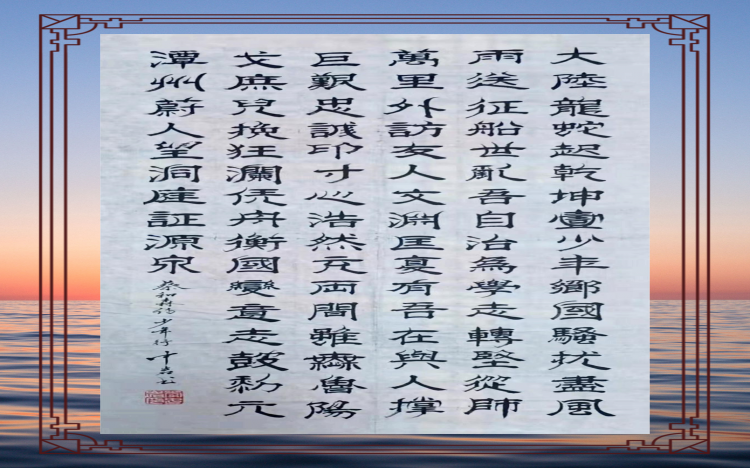 大陸龍蛇起乾坤壹少年鄉國騷擾盡風
雨送征船世亂吾自治為學志轉堅從師
萬里外訪友人文淵匡夏有吾在與人撐
巨艱忠誠印寸心浩然充両間雖無魯陽
戈庶兒挽狂瀾凭舟衡國變意志鼓黎元
潭州蔚人望洞庭証源泉
癸卯 少年行